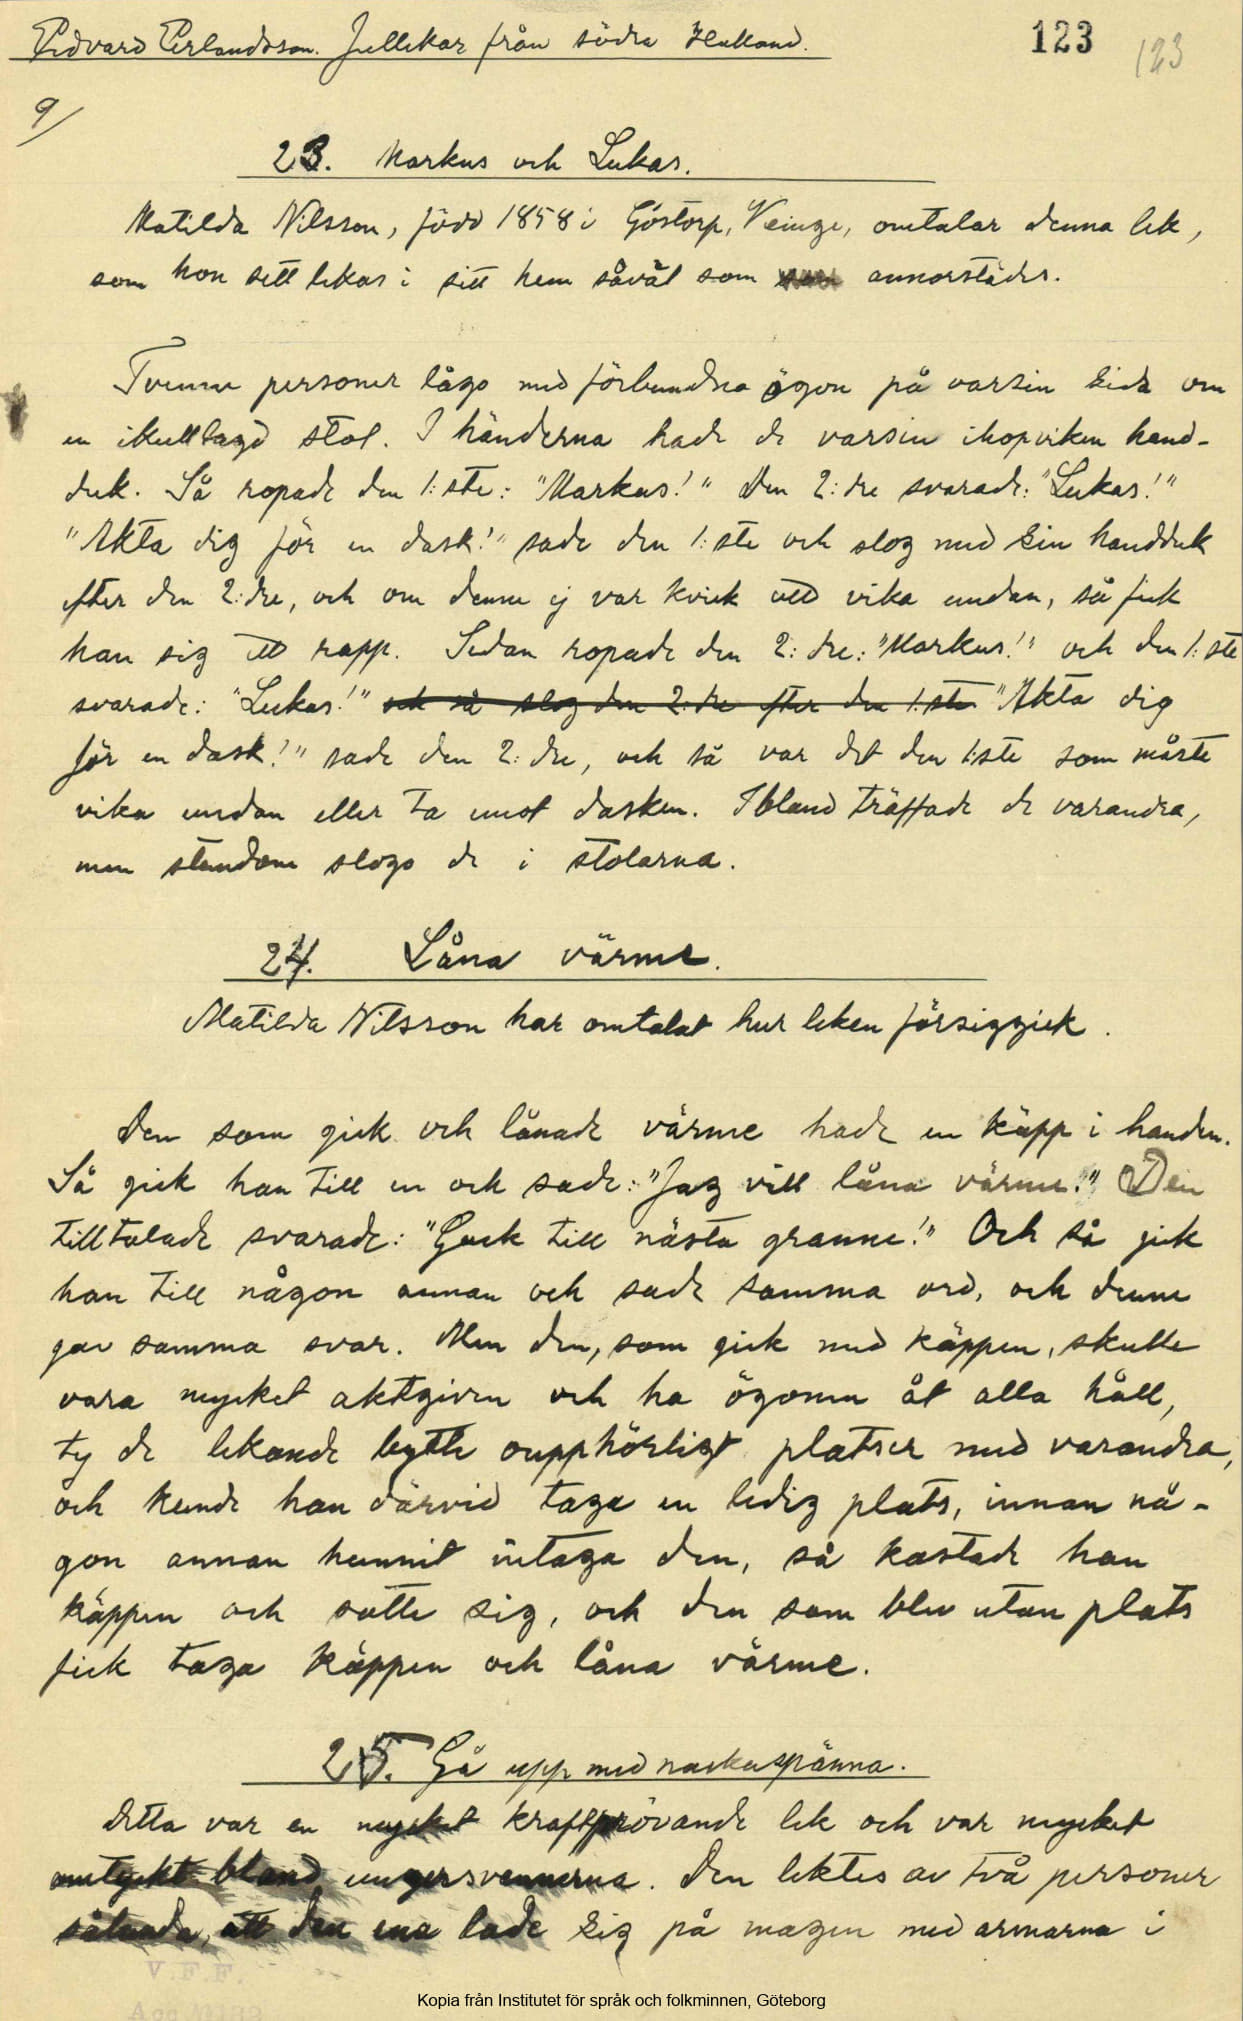 Edvard Erlandsson. Jullekar från södra Halland.
123
123
9/
23. Markus och Lukas.
Matilda Nilsson, född 1858 i Göstorp, Veinge, omtalar denna lek,
som hon sett lekas i sitt hem såväl som som annorstädes.
Tvenne personer lågo med förbundna ögon på varsin sida om
en ikullagd stol. I händerna hade de varsin ihopviken hand-
duk. Så ropade den 1:ste: "Markus!" Den 2:dre svarade: "Lukas!"
"Akta dig för en dask!" sade den 1:ste och slog med sin handduk
efter den 2:dre, och om denne ej var kvick att vika undan, så fick
han sig ett rapp. Sedan ropade den 2:dre: "Markus!" och den 1:ste
svarade: "Lukas!" och så slog den 2:dre efter den 1:ste "Akta dig
för en dask!" sade den 2:dre, och så var det den 1:ste som måste
vika undan eller ta emot dasken. Ibland träffade de varandra,
men stundom slogo de i stolarna.
24. Låna värme.
Matilda Nilsson har omtalat hur leken försiggick.
Den som gick och lånade värme hade en käpp i handen.
Så gick han till en och sade: "Jag vill låna värme." Den
tilltalade svarade: "Gack till nästa granne!" Och så gick
han till någon annan och sade samma ord, och denne
gav samma svar. Men den, som gick med käppen, skulle
vara mycket aktgiven och ha ögonen åt alla håll,
ty de lekande bytte oupphörligt platser med varandra,
och kunde han därvid taga en ledig plats, innan nå-
gon annan hunnit intaga den, så kastade han
käppen och satte sig, och den som blev utan plats
fick taga käppen och låna värme.
25. Gå upp med nackaspänna.
Detta var en mycket kraftprövande lek och var mycket
omtyckt bland ungersvennerna. Den lektes av två personer
sålunda, att den ena lade sig på magen med armarna i
V.F.F.
Acc
Kopia från Institutet för språk och folkminnen, Göteborg